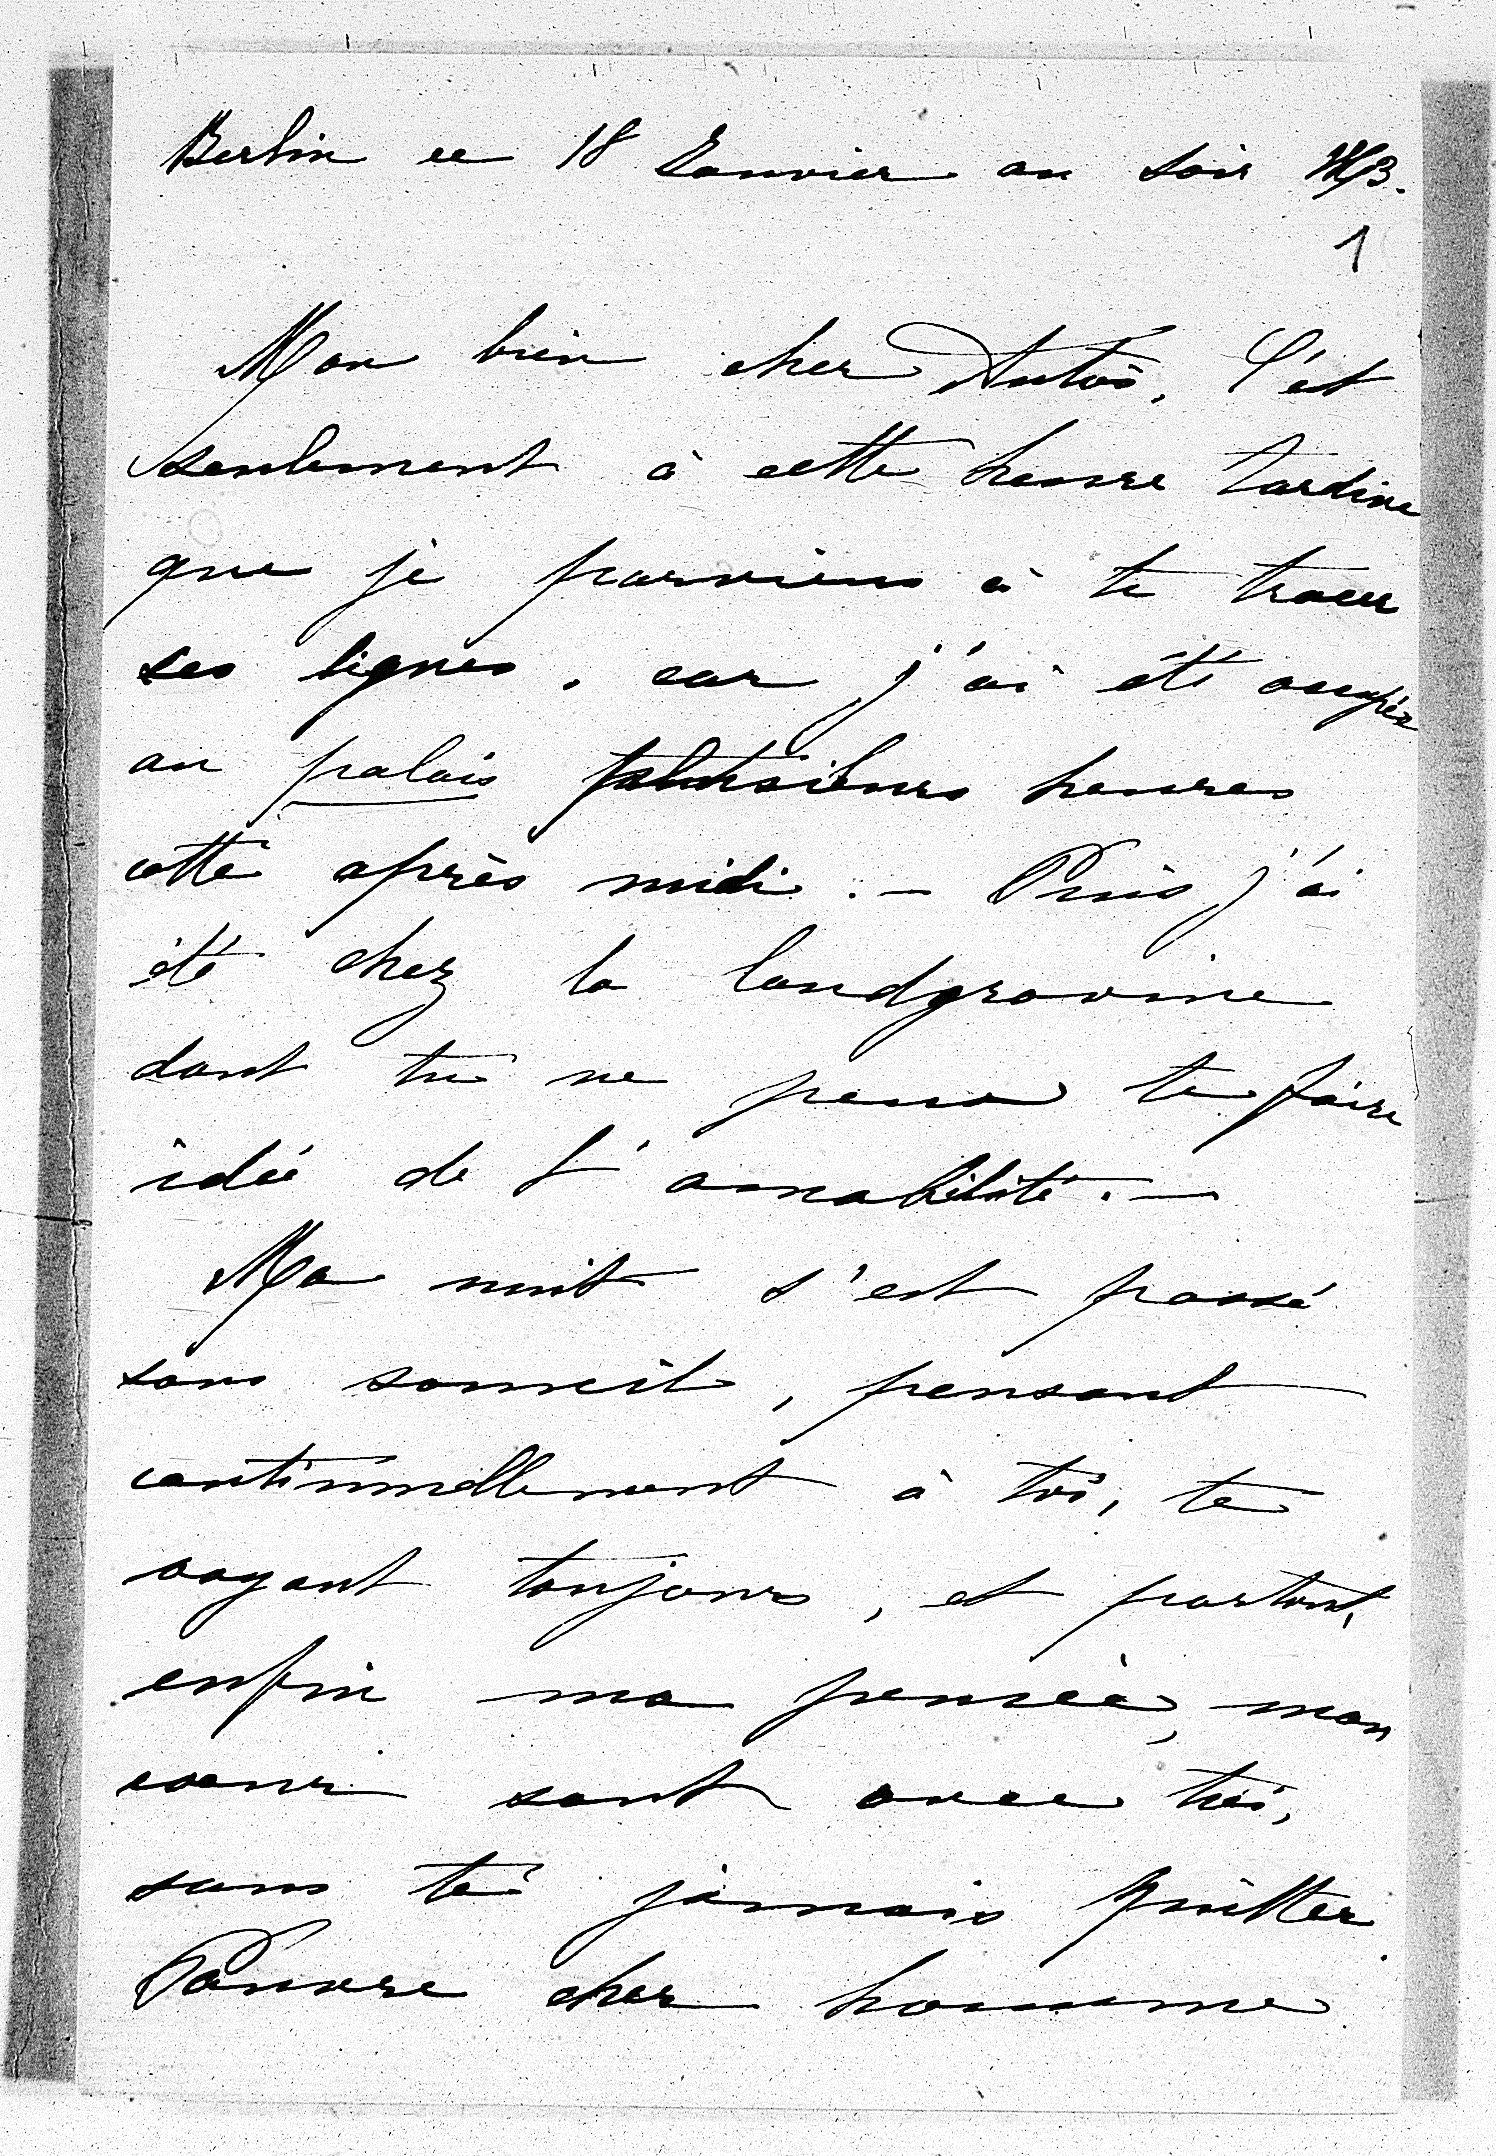 Berlin ce 18 Janvier au soir
1
Mon bien cher Antoś, C'est
seulement à cette heure tardive
que je parviens à te tracer
ses lignes, car j'ai été occupée
au palais plusieurs heures
cette après midi. — Puis j'ai
été chez la landgravine
dont tu ne peux te faire
idée de l'amabilité. —
Ma nuit s'est passé
sans someil, pensant
continuellement à toi, te
voyant toujours, et partout,
enfin ma pensée, mon
coeur sont avec toi,
sans te jamais quitter
Pauvre cher homme